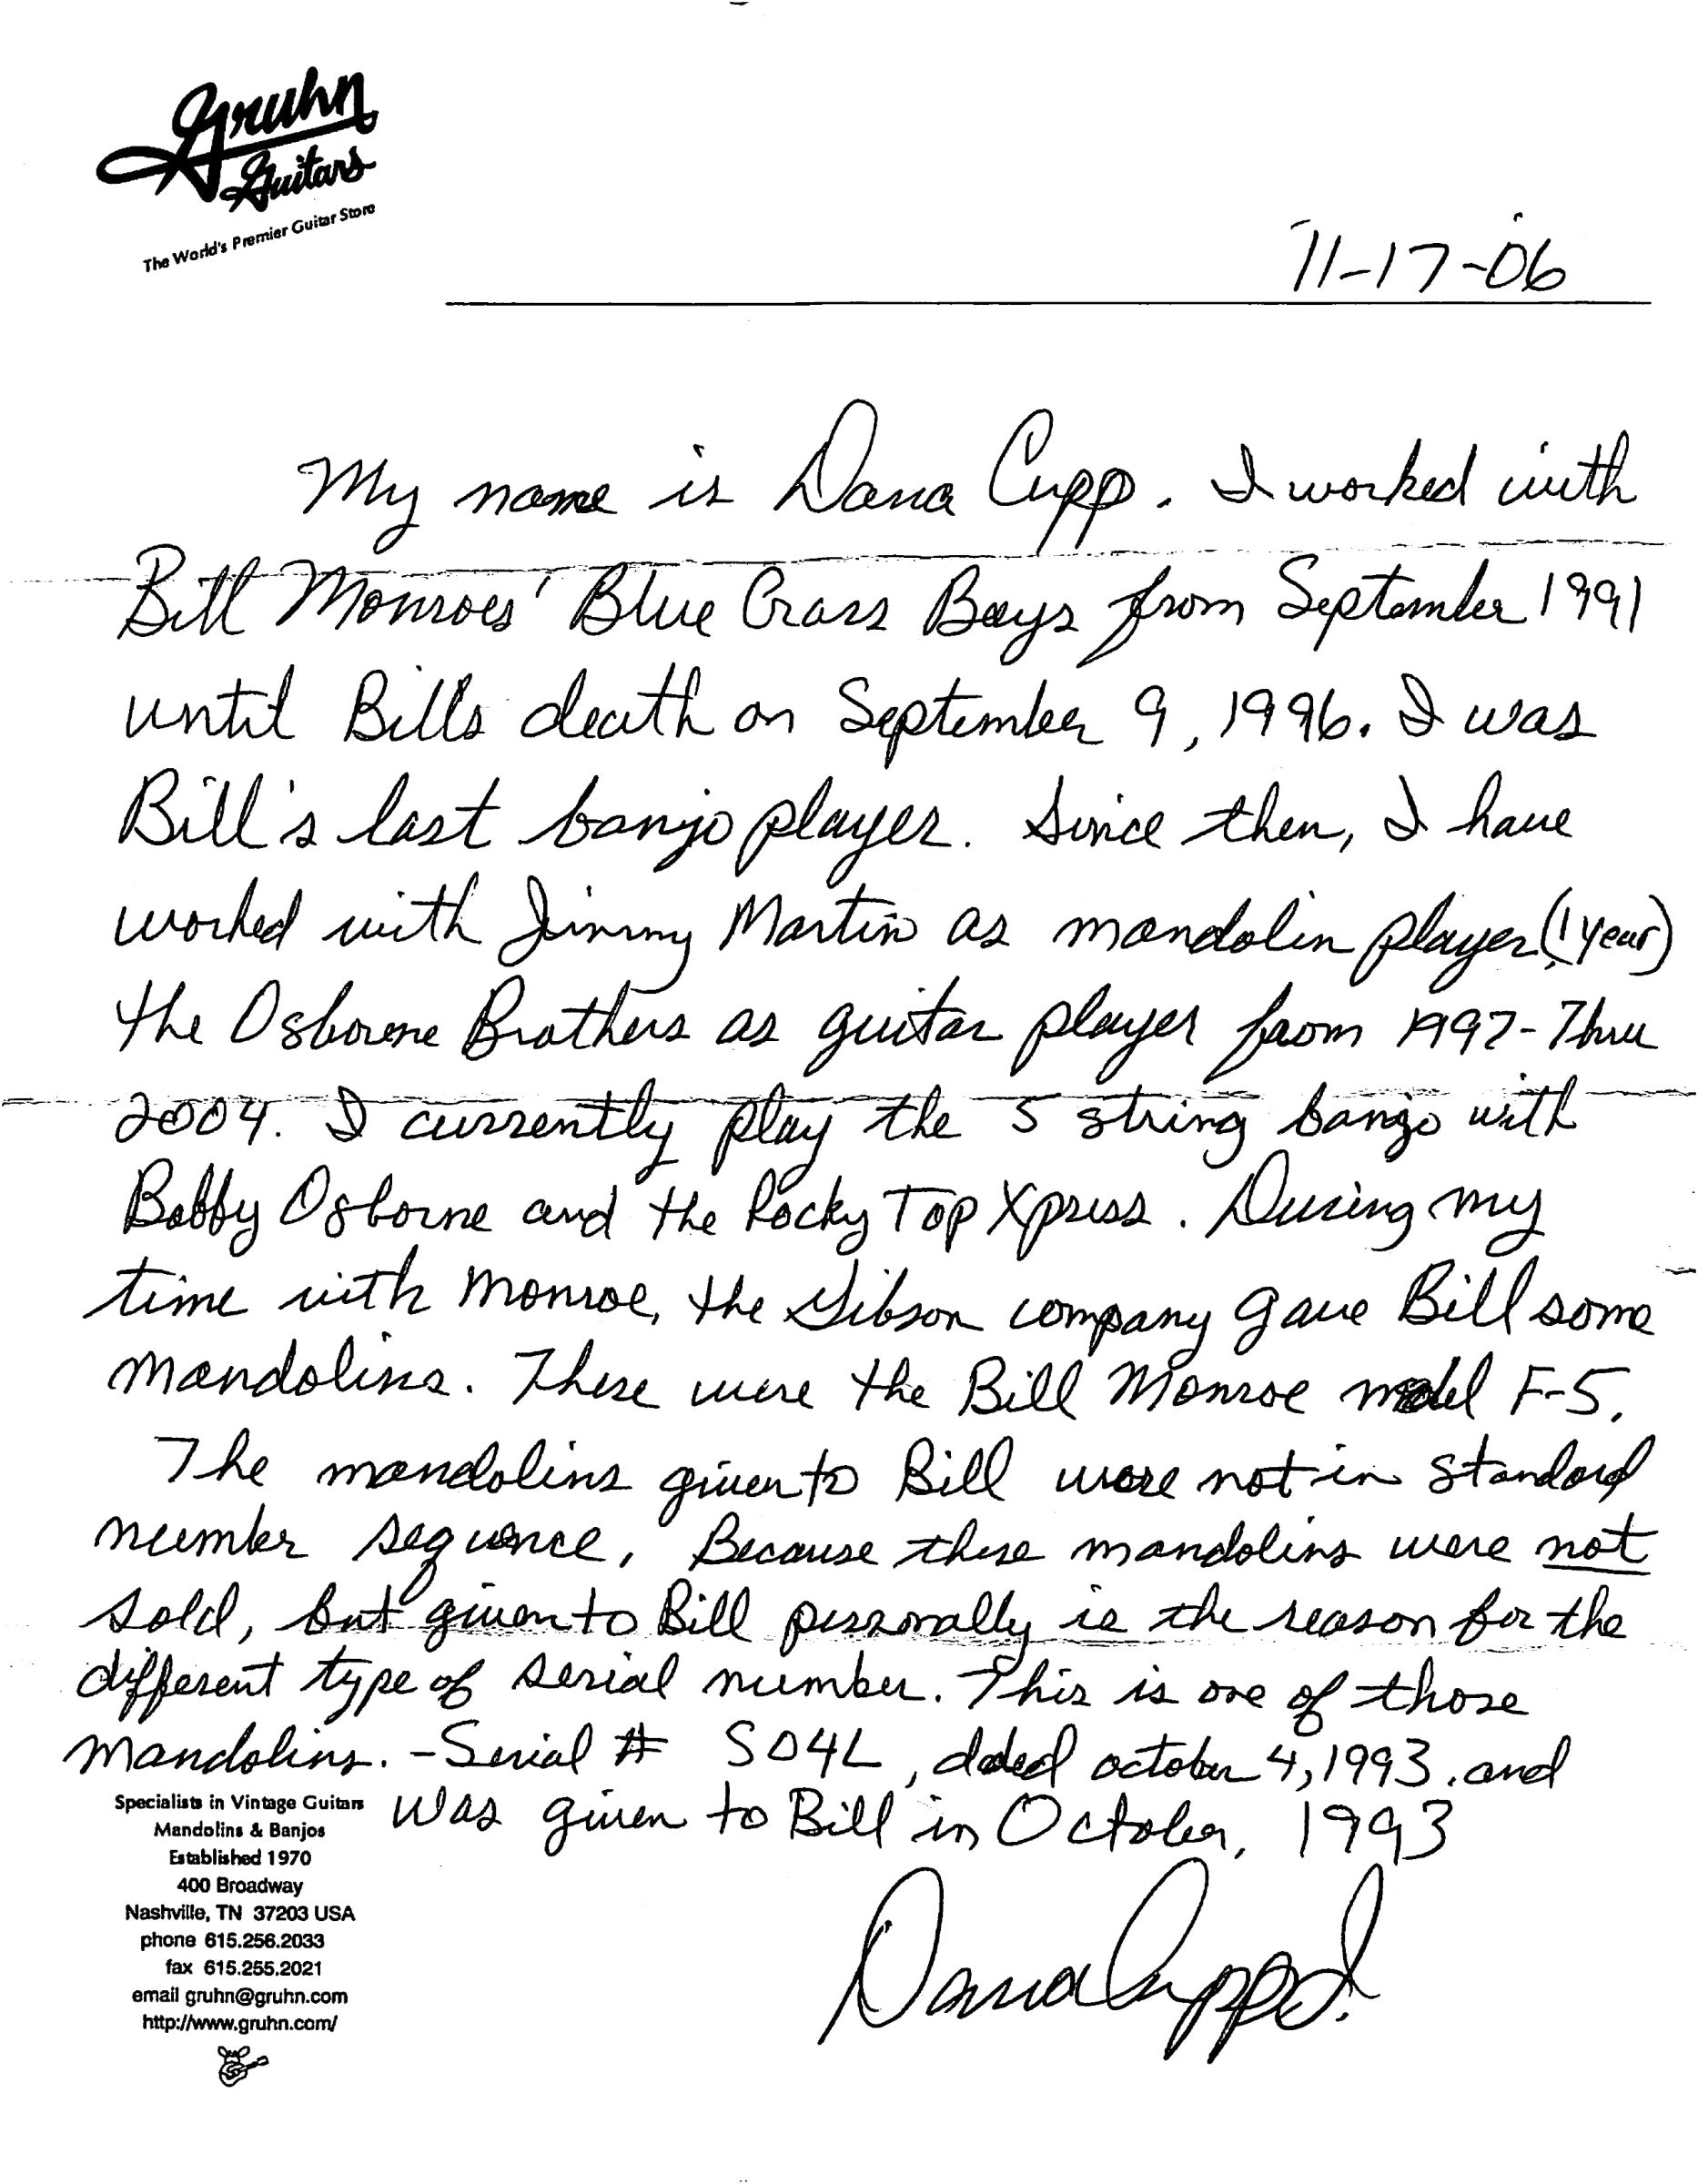 Gruhn
Guitars
The World's Premier Guitar Store
11-17-06
My name is Dana Cupp. I worked with
Bill Monroes' Blue Grass Boys from September 1991
until Bills death on September 9, 1996. I was
Bill's last banjo player. Since then, I have
worked with Jimmy Martin as mandolin player (1 year)
the Osborne Brothers as guitar player from 1997-Thru
2004. I currently play the 5 string banjo with
Bobby Osborne and the Rocky Top Xpress. During my
time with Monroe, the Gibson company gave Bill some
Mandolins. These were the Bill Monroe model F-5.
The mandolins given to Bill were not in standard
number sequence. Because these mandolins were not
sold, but given to Bill personally is the reason for the
different type of serial number. This is one of those
Mandolins. - Serial # S04L, dated october 4, 1993. and
was given to Bill in October, 1993
Dana Cupp J.
Specialists in Vintage Guitars
Mandolins & Banjos
Established 1970
400 Broadway
Nashville, TN 37203 USA
phone 615.256.2033
fax 615.255.2021
email gruhn@gruhn.com
http://www.gruhn.com/